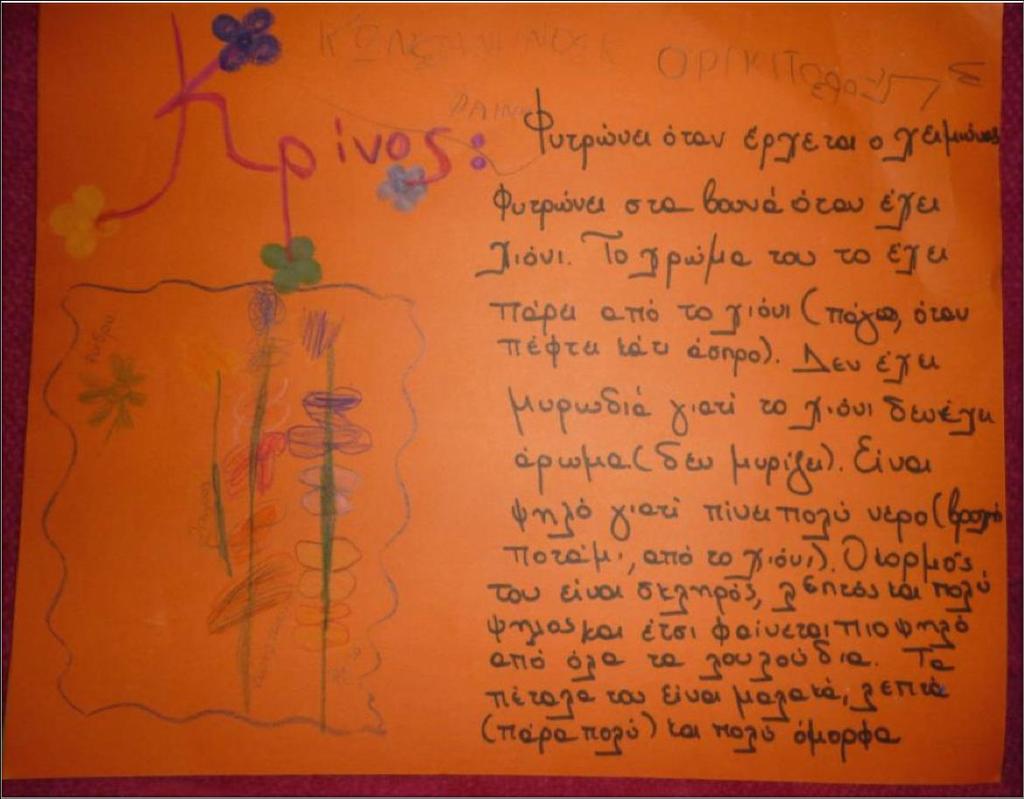 Κρίνος:
Φυτρώνει όταν έρχεται ο χειμώνας
Φυτρώνει στα βουνά όταν έχει
χιόνι. Το χρώμα του το έχει
πάρει από το χιόνι (πάγω, όταν
πέφτει κάτι άσπρο). Δεν έχει
μυρωδιά γιατί το χιόνι δεν έχει
άρωμα (δεν μυρίζει). Είναι
ψηλό γιατί πίνει πολύ νερό (βροχή
ποτάμι, από το χιόνι). Ο κορμός
του είναι σκληρός, λεπτός και πολύ
ψηλος και έτσι φαίνεται πιο ψηλό
από όλα τα λουλούδια. Τα
πέταλα του είναι μαλακά, λεπτά
(πάρα πολύ) και πολύ όμορφα